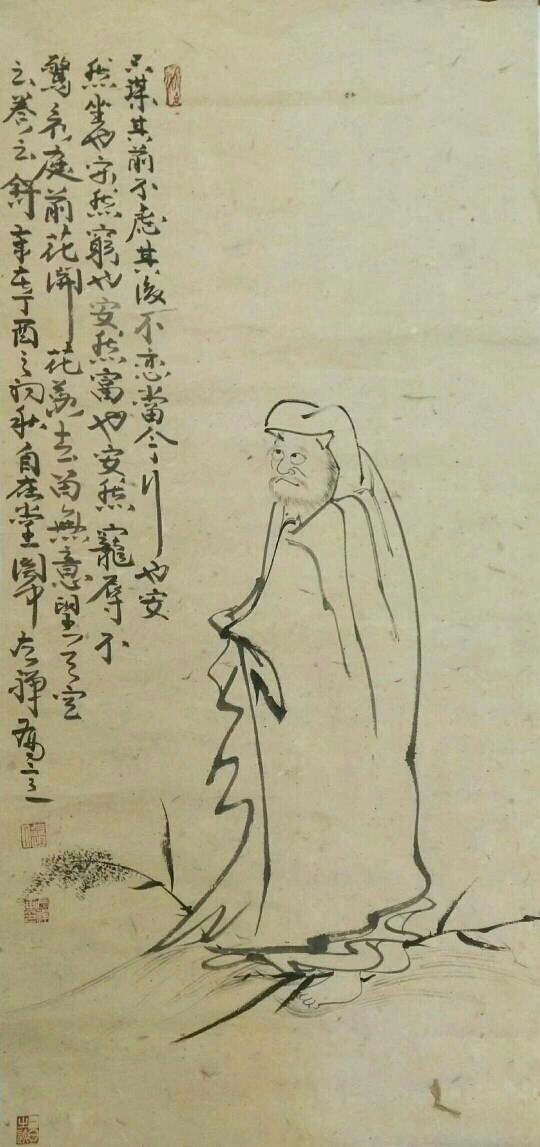 不謀其前不慮其後不恋當今行也安
然坐也安然窮也安然富也安然寵辱不
驚看庭前花開花落去留無意望天空
云卷云舒 丁酉之初秋自在堂